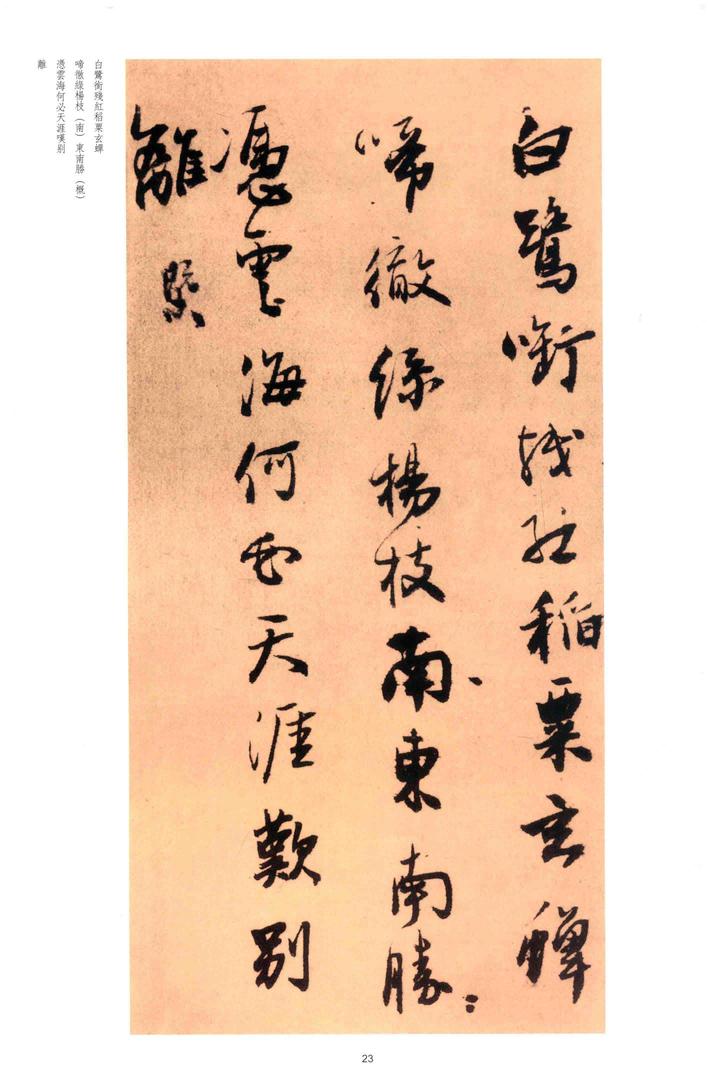 白鷺銜殘紅稻粟玄蟬
啼徹綠楊枝南東南勝
憑雲海何必天涯歎别
離 概
白鷺銜殘紅稻粟玄蟬
啼徹綠楊枝（南）東南勝（概）
憑雲海何必天涯嘆别
離
23